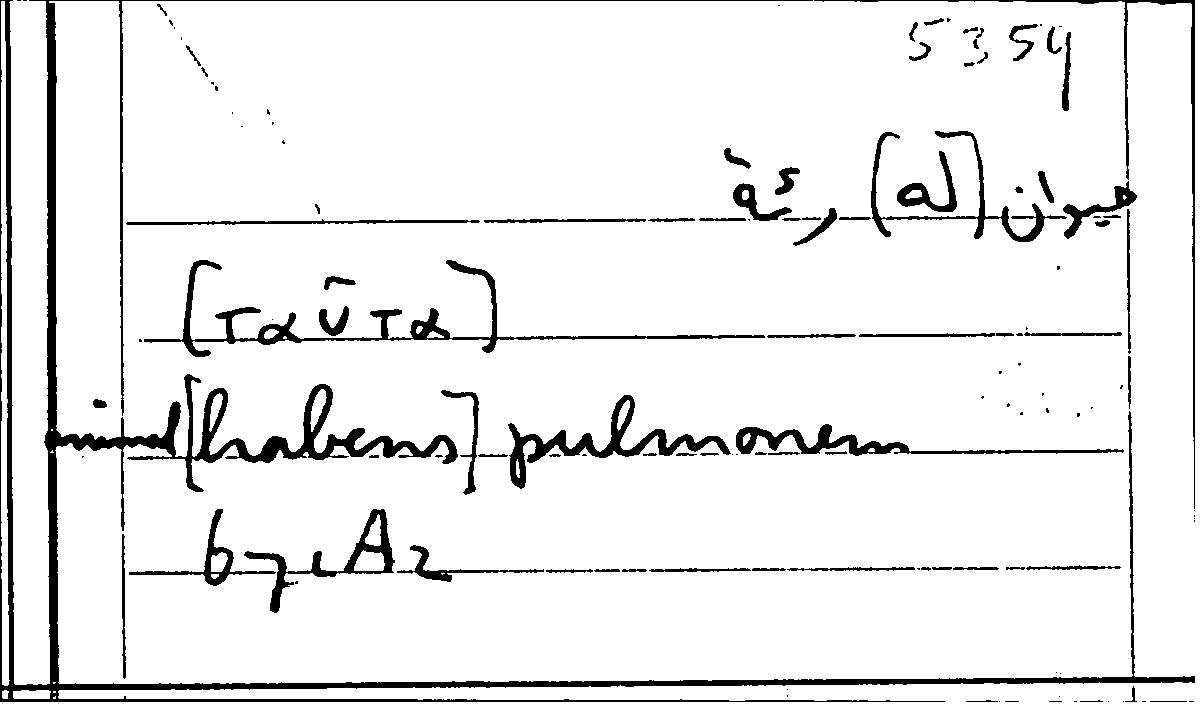 5354
حيوان [له] رئة
[ταῦτα]
animal [habens] pulmonem
671A2